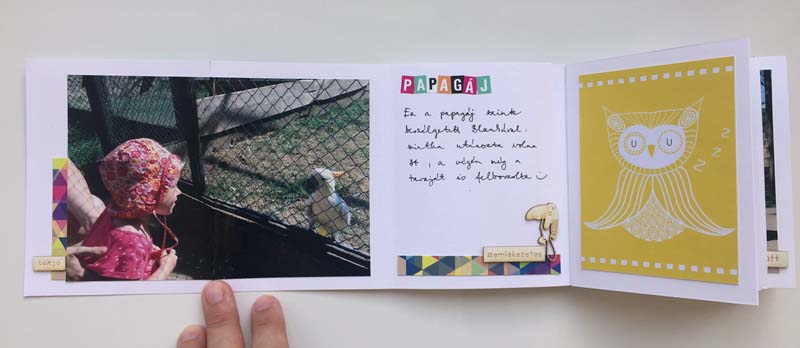 PAPAGÁJ
Ez a papagáj szinte
beszélgetett Blankával,
mintha utánozta volna
őt, a végén még a
taraját is felborzolta :)
tökjó
#emlékezetes
z
z
z